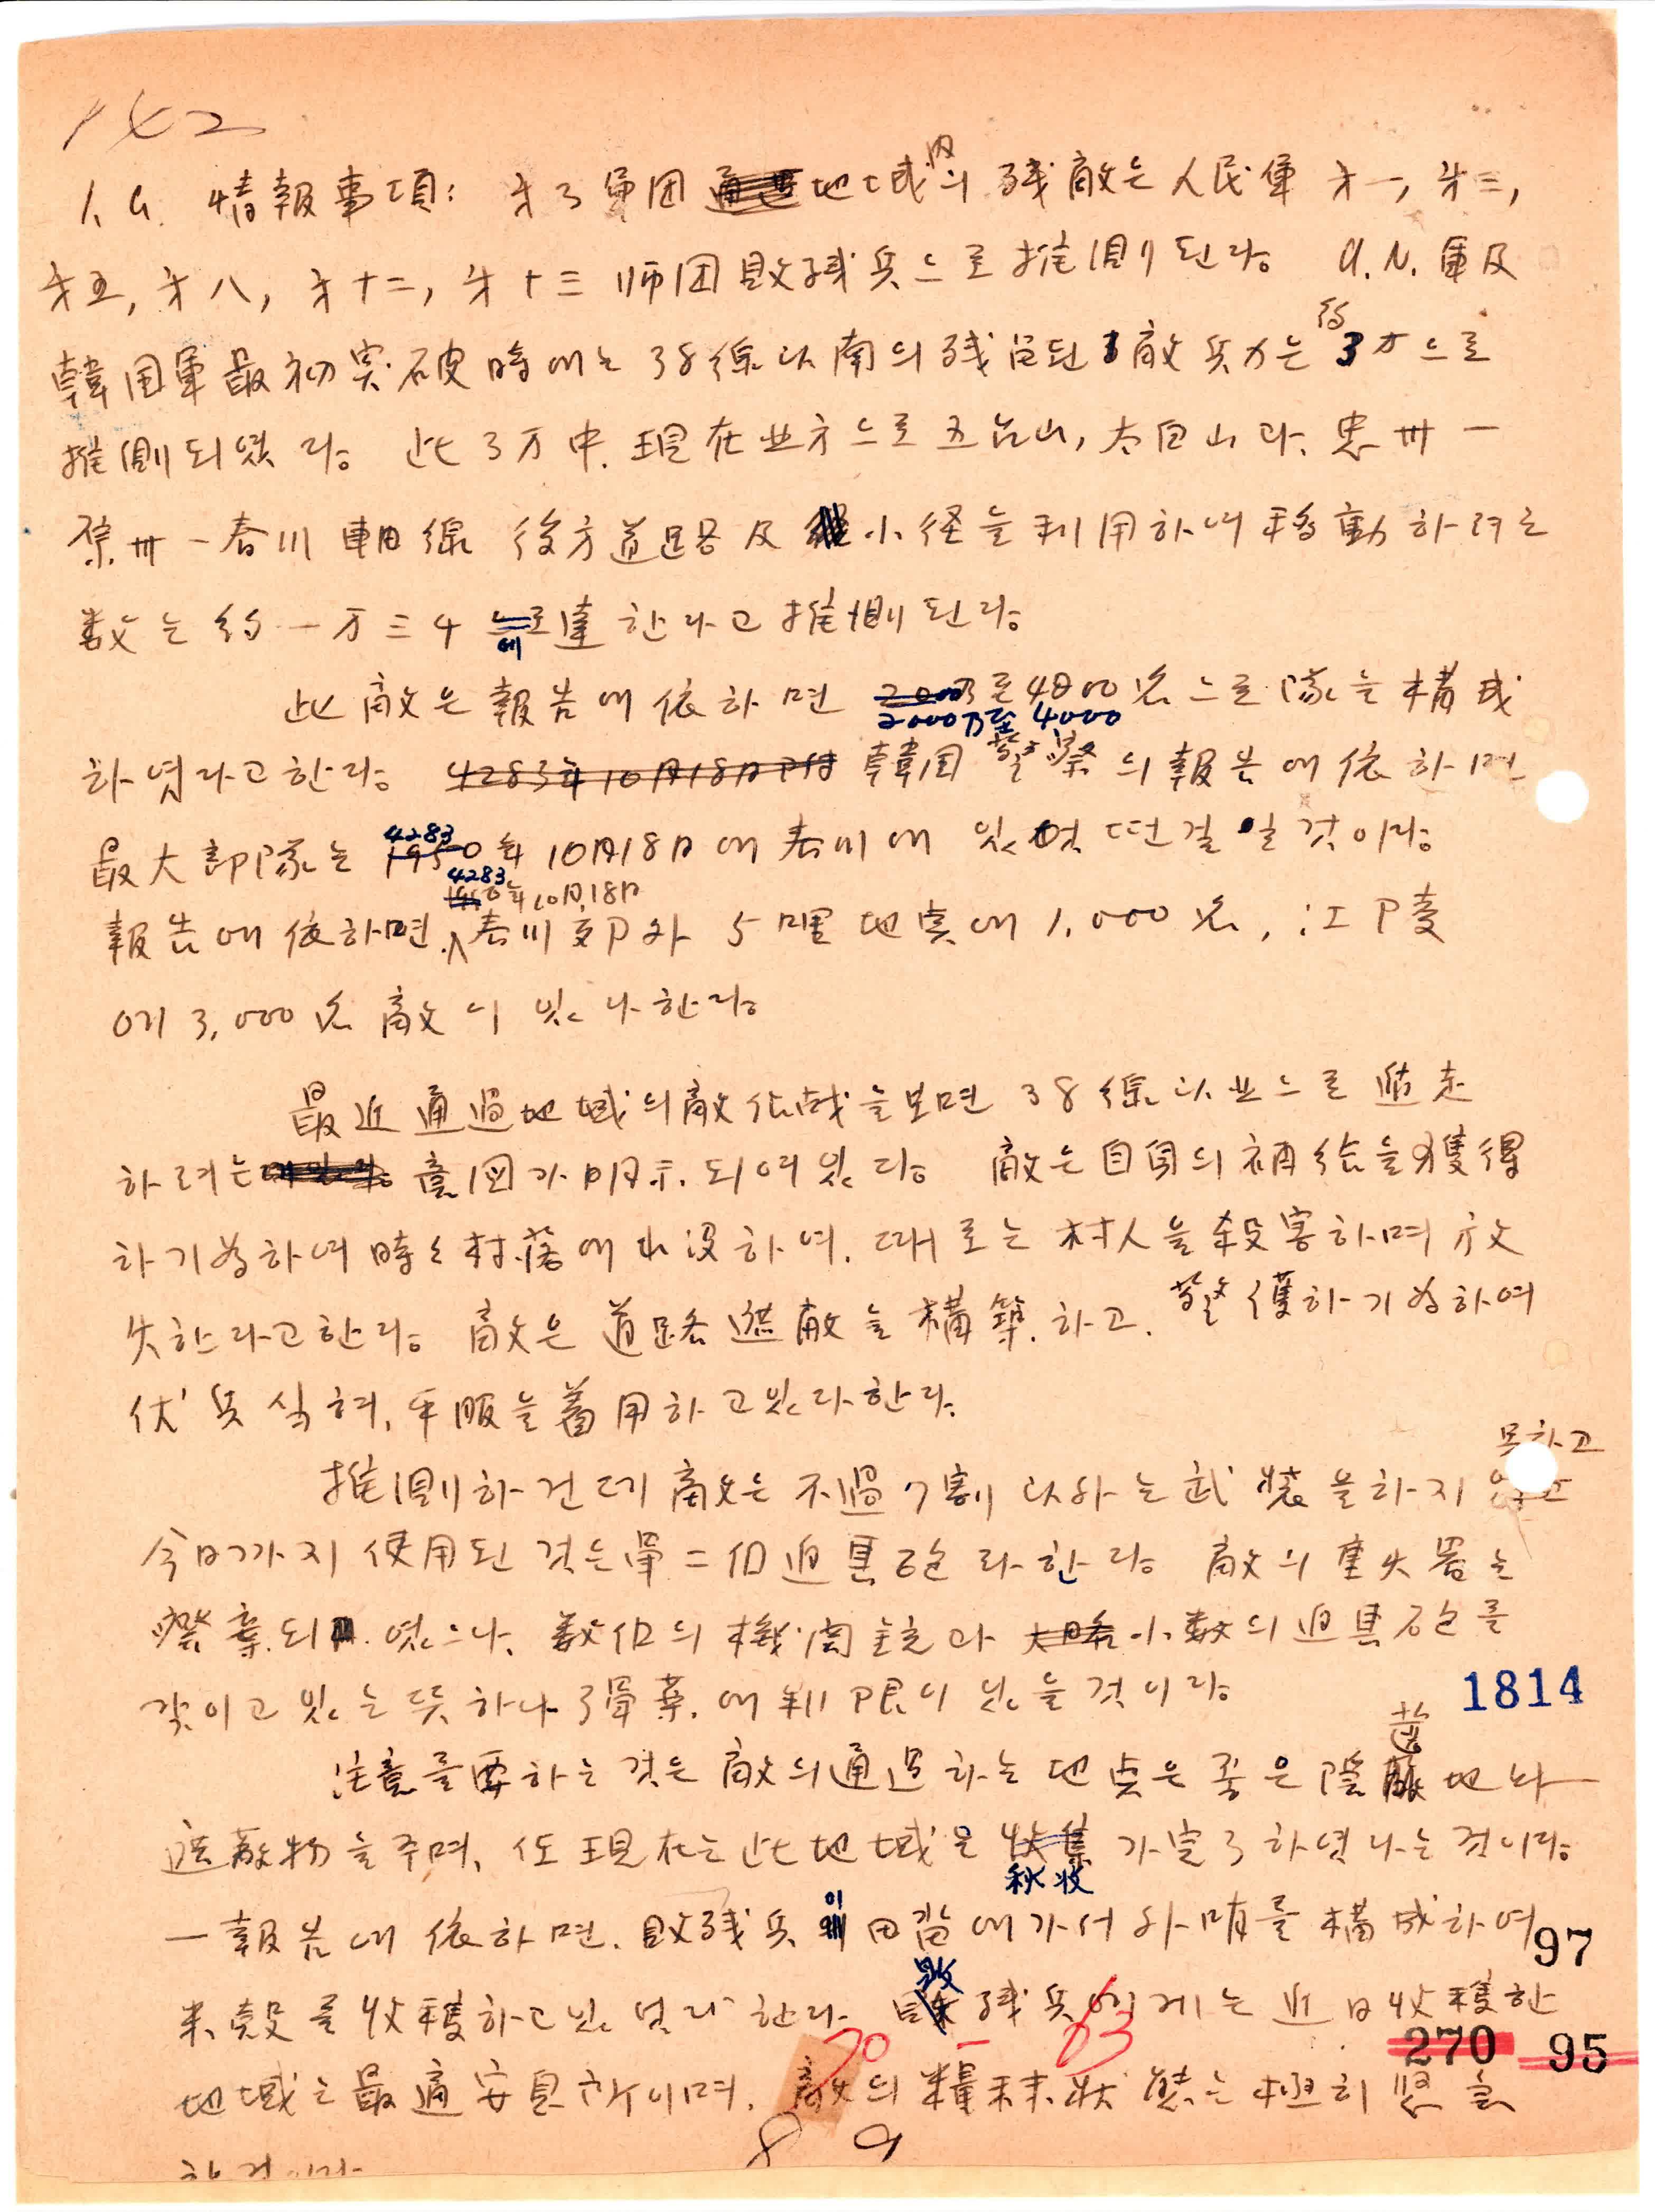 142
1. a. 情報事項: 才3軍団 地域内의 残敵은 人民軍 才一, 才三,
才五, 才八, 才十二, 才十三 师団 敗残兵으로 推測된다。 U.N. 軍及
韓国軍最初突破時에는 38線以南의 残留된 敵兵力은 約 3万으로
推測되였다。 此 3万中, 現在 北方으로 五台山, 太白山과, 忠州 —
原州 — 春川 軸線 後方道路及 小径을 利用하여 移動하려는
数는 約 一万三千에 達한다고 推測된다。
此 敵은 報告에 依하면 2000乃至 4000名으로 隊을 構成
하였다고 한다。 4283年10月18日附 韓国警察의 報告에 依하면
最大部隊는 4283年 10月18日에 春川에 있었던 걸일 것이다。
報告에 依하면, 4283年10月18日 春川郊外 5哩 地点에 1,000名, 江陵
에 3,000名 敵이 있다 한다。
最近 通過地域의 敵作戦을 보면 38線以北으로 逃走
하려는 意図가 明示되여 있다。 敵은 自身의 補給을 獲得
하기 為하여 時々 村落에 出没하여, 때로는 村人을 殺害하며 放
火한다고 한다。 敵은 道路遮蔽을 構築하고, 警護하기 為하여
伏兵식혀, 平服을 着用하고 있다 한다.
推測하건데 敵은 不過 7割 以外는 武装을 하지 못하고
今日까지 使用된 것은 單二個迫撃砲라 한다。 敵의 重火器는
廃棄되였으나, 数個의 機関銃과 小数의 迫撃砲를
갖이고 있는 뜻하나 彈薬에 制限이 있을 것이다。
1814
注意를 要하는 것은 敵의 通過하는 地点은 좋은 隠蔽地와
遮蔽物을 주며, 但 現在는 此 地域은 秋收가 完了하였다는 것이다。
一報告에 依하면, 敗残兵이 田畓에 가서 外哨를 構成하여
97
米穀를 收穫하고 있었다 한다. 敗残兵에게는 近日 收穫한
70 — 63
270 95
地域은 最適安息所이며, 敵의 糧末状態는 極히 緊急
89
할 것이다